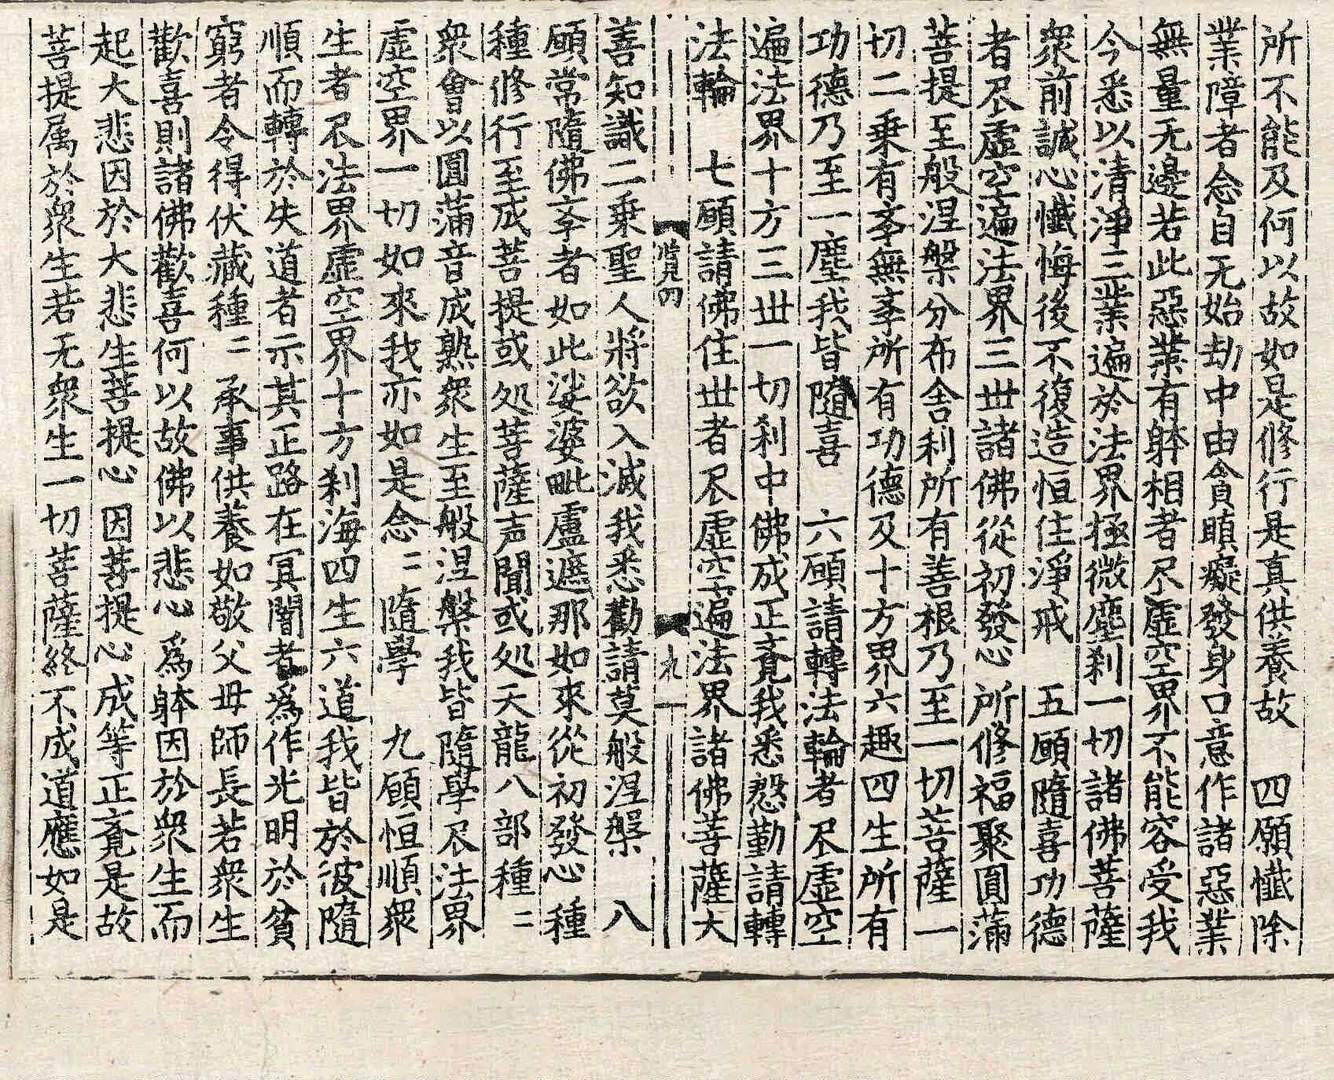 所不能及何以故如是修行是真供養故　四願懺除
業障者念自无始劫中由貪瞋癡發身口意作諸惡業
無量无邊若此惡業有躰相者尽虛空界不能容受我
今悉以清淨三業遍於法界極微塵刹一切諸佛菩薩
衆前誠心懺悔後不復造恒住淨戒　五願隨喜功德
者尽虛空遍法界三世諸佛從初發心所修福聚圓滿
菩提至般涅槃分布舍利所有善根乃至一切菩薩一
切二乗有斈無斈所有功德及十方界六趣四生所有
功德乃至一塵我皆隨喜　六願請轉法輪者尽虛空
遍法界十方三世一切刹中佛成正覔我悉慇勤請轉
法輪　七願請佛住世者尽虛空遍法界諸佛菩薩大
九
善知識二乗聖人將欲入滅我悉勸請莫般涅槃　八
願常隨佛斈者如此娑婆毗盧遮那如來從初發心種
種修行至成菩提或处菩薩声聞或处天龍八部種〻
衆會以圓滿音成熟衆生至般涅槃我皆隨學尽法界
虛空界一切如來我亦如是念〻隨學　九願恒順衆
生者尽法界虛空界十方刹海四生六道我皆於彼隨
順而轉於失道者示其正路在冥闇者爲作光明於貧
窮者令得伏藏種〻承事供養如敬父母師長若衆生
歡喜則諸佛歡喜何以故佛以悲心爲躰因於衆生而
起大悲因於大悲生菩提心因菩提心成等正覔是故
菩提属於衆生若无衆生一切菩薩終不成道應如是